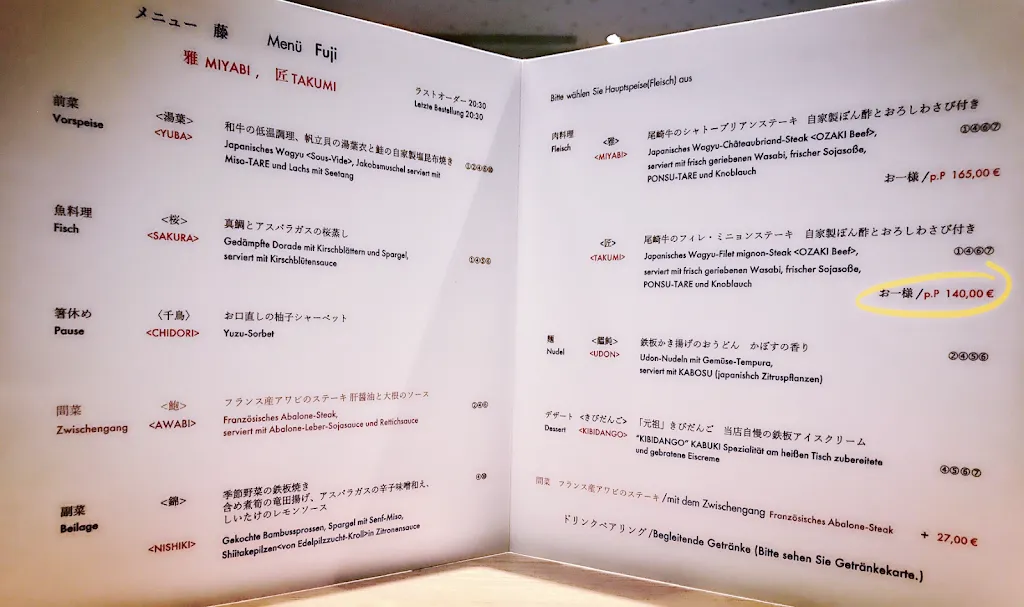 メニュー 藤 Menü Fuji
雅 MIYABI , 匠 TAKUMI
ラストオーダー 20:30
Letzte Bestellung 20:30
前菜
Vorspeise
<湯葉>
<YUBA>
和牛の低温調理、帆立貝の湯葉衣と鮭の自家製塩昆布焼き
Japanisches Wagyu <Sous-Vide>, Jakobsmuschel serviert mit
Miso-TARE und Lachs mit Seetang
魚料理
Fisch
<桜>
<SAKURA>
真鯛とアスパラガスの桜蒸し
Gedämpfte Dorade mit Kirschblättern und Spargel,
serviert mit Kirschblütensauce
①④⑤⑥
箸休め
Pause
〈千鳥〉
<CHIDORI>
お口直しの柚子シャーベット
Yuzu-Sorbet
間菜
Zwischengang
<鮑>
<AWABI>
フランス産アワビのステーキ 肝醤油と大根のソース
Französisches Abalone-Steak,
serviert mit Abalone-Leber-Sojasauce und Rettichsauce
②④⑥
副菜
Beilage
<錦>
<NISHIKI>
季節野菜の鉄板焼き
含め煮筍の竜田揚げ、アスパラガスの辛子味噌和え、
しいたけのレモンソース
Gekochte Bambussprossen, Spargel mit Senf-Miso,
Shiitakepilzen<von Edelpilzzucht-Kroll>in Zitronensauce
Bitte wählen Sie Hauptspeise(Fleisch) aus
肉料理
Fleisch
<雅>
<MIYABI>
尾崎牛のシャトーブリアンステーキ 自家製ぽん酢とおろしわさび付き
Japanisches Wagyu-Châteaubriand-Steak <OZAKI Beef>,
serviert mit frisch geriebenen Wasabi, frischer Sojasoße,
PONSU-TARE und Knoblauch
①④⑥⑦
お一様 /p.P 165,00 €
<匠>
<TAKUMI>
尾崎牛のフィレ・ミニョンステーキ 自家製ぽん酢とおろしわさび付き
Japanisches Wagyu-Filet mignon-Steak <OZAKI Beef>,
serviert mit frisch geriebenen Wasabi, frischer Sojasoße,
PONSU-TARE und Knoblauch
①④⑥⑦
お一様 /p.P 140,00 €
麺
Nudel
<饂飩>
<UDON>
鉄板かき揚げのおうどん かぼすの香り
Udon-Nudeln mit Gemüse-Tempura,
serviert mit KABOSU (japanishch Zitruspflanzen)
②④⑤⑥
デザート
Dessert
<きびだんご>
<KIBIDANGO>
「元祖」きびだんご 当店自慢の鉄板アイスクリーム
"KIBIDANGO" KABUKI Spezialität am heißen Tisch zubereitete
und gebratene Eiscreme
④⑤⑥⑦
間菜 フランス産アワビのステーキ/mit dem Zwischengang Französisches Abalone-Steak
+ 27,00 €
ドリンクペアリング/Begleitende Getränke (Bitte sehen Sie Getränkekarte.)